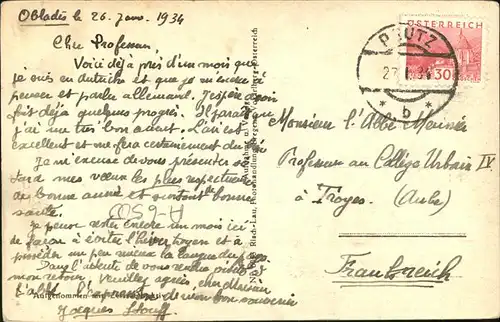 Obladis le 26 Janv. 1934
Cher Professeur,
Voici déjà près d'un mois que
je suis en Autriche et que je m'exerce à
penser et parler allemand. J'espère avoir
fait déjà quelques progrès. Il paraît que
j'ai un très bon accent. L'air est
excellent et me fera certainement du bien
Je m'excuse de vous présenter si
tard mes vœux les plus respectueux
de bonne année et surtout bonne
santé.
A-6503
Je pense rester encore un mois ici
de façon à éviter l'hiver troyen et à
posséder un peu mieux la langue du pays.
Dans l'attente de vous rendre visite à
mon retour, veuillez agréer, cher Monsieur
l'abbé, de mon bon souvenir
Jacques
Aufgenommen
Risch-Lau, Photohandlung, Bregenz
ÖSTERREICH
30
PRUTZ
27. I. 34
* b *
Monsieur l'Abbé Meunier
Professeur au Collège Urbain IV
à Troyes (Aube)
Frankreich